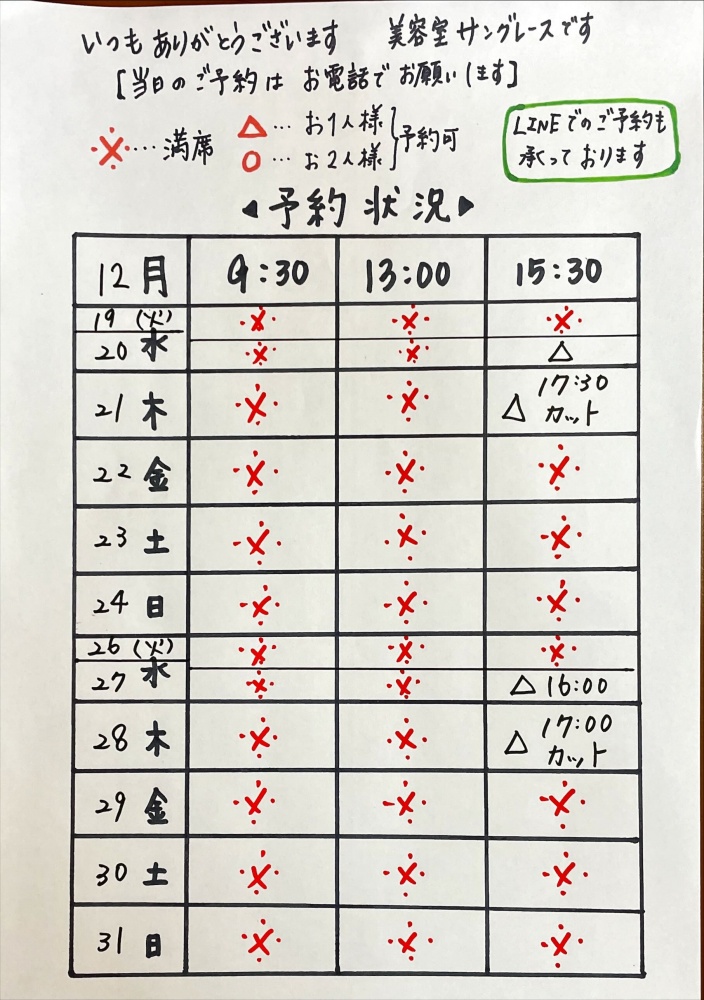 いつもありがとうございます 美容室サングレースです
[当日のご予約は お電話でお願いします]
※…満席
△…お1人様
○…お2人様
予約可
LINEでのご予約も
承っております
◀予約状況▶
12月 9:30 13:00 15:30
19(火) ※ ※ ※
20 水 ※ ※ △
21 木 ※ ※ △ 17:30 カット
22 金 ※ ※ ※
23 土 ※ ※ ※
24 日 ※ ※ ※
26(火) ※ ※ ※
27 水 ※ ※ △ 16:00
28 木 ※ ※ △ 17:00 カット
29 金 ※ ※ ※
30 土 ※ ※ ※
31 日 ※ ※ ※